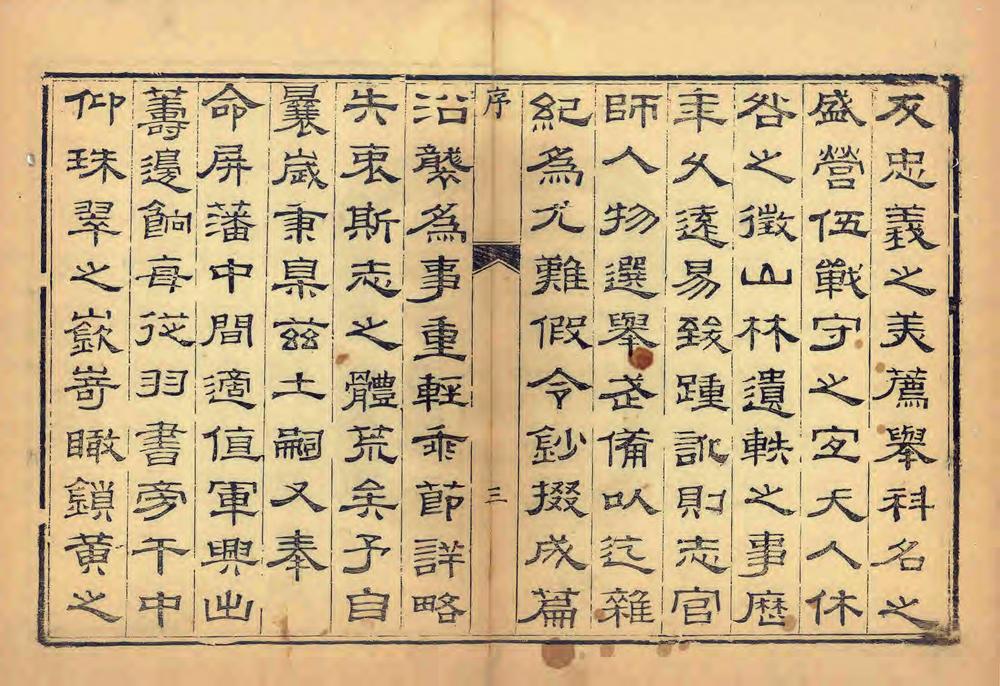 友忠義之美薦舉科名之
盛營伍戰守之宜天人休
咎之徵山林遺軼之事歷
年久遠易致踵訛則志官
師人物選舉武備以迄雜
紀爲尤難假令鈔掇成篇
序
三
沿襲爲事重輕乖節詳略
失衷斯志之體荒矣予自
曩歲秉臬茲土嗣又奉
命屏藩中間適值軍興出
籌邊餉每從羽書旁午中
仰珠翠之嶔嵜瞰鎖黃之